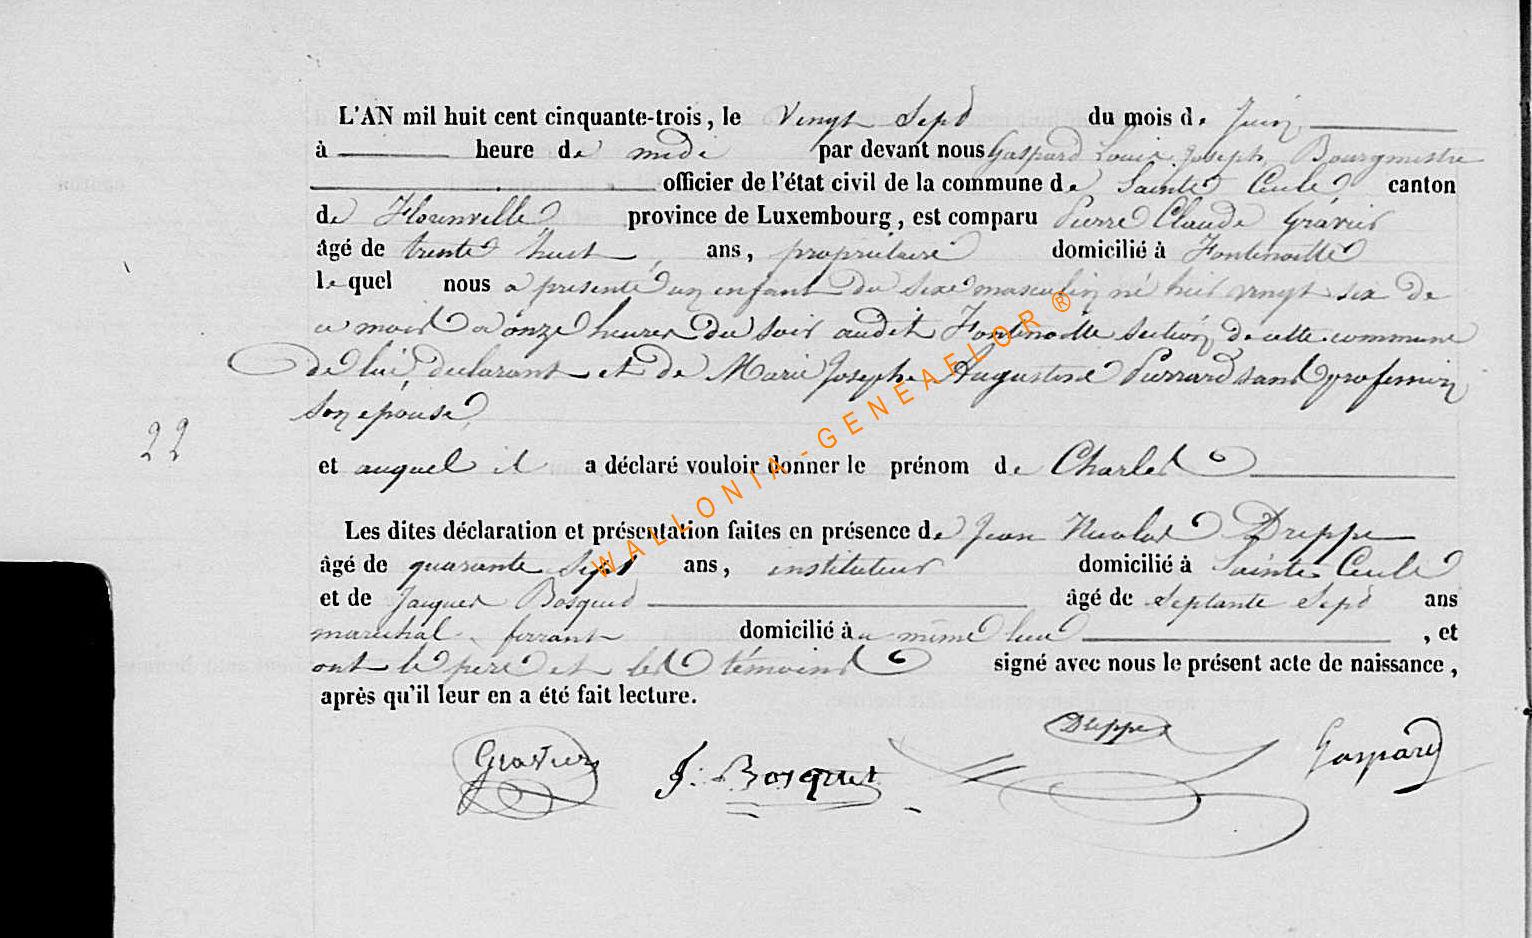 L'AN mil huit cent cinquante-trois, le Vingt Sept du mois de Juin
à heure de midi par devant nous Gaspard Louis Joseph Bourgmestre
officier de l'état civil de la commune de Sainte Cecile canton
de Florenville province de Luxembourg, est comparu Pierre Claude Gravier
âgé de trente huit ans, propriétaire domicilié à Fontenoille
le quel nous a présenté un enfant du sexe masculin né hier vingt six de
ce mois à onze heures du soir audit Fontenoille section de cette commune
de lui déclarant et de Marie Josephe Augustine Pierrard sans profession
son épouse
22
et auquel il a déclaré vouloir donner le prénom de Charles
Les dites déclaration et présentation faites en présence de Jean Nicolas Dreppe
âgé de quarante Sept ans, instituteur domicilié à Sainte Cecile
et de Jacques Bosquet âgé de Septante Sept ans
maréchal ferrant domicilié à u même lieu , et
ont le père et les témoins signé avec nous le présent acte de naissance,
après qu'il leur en a été fait lecture.
Gravier J. Bosquet Dreppe Gaspard
WALLONIA-GENEAFLOR ®